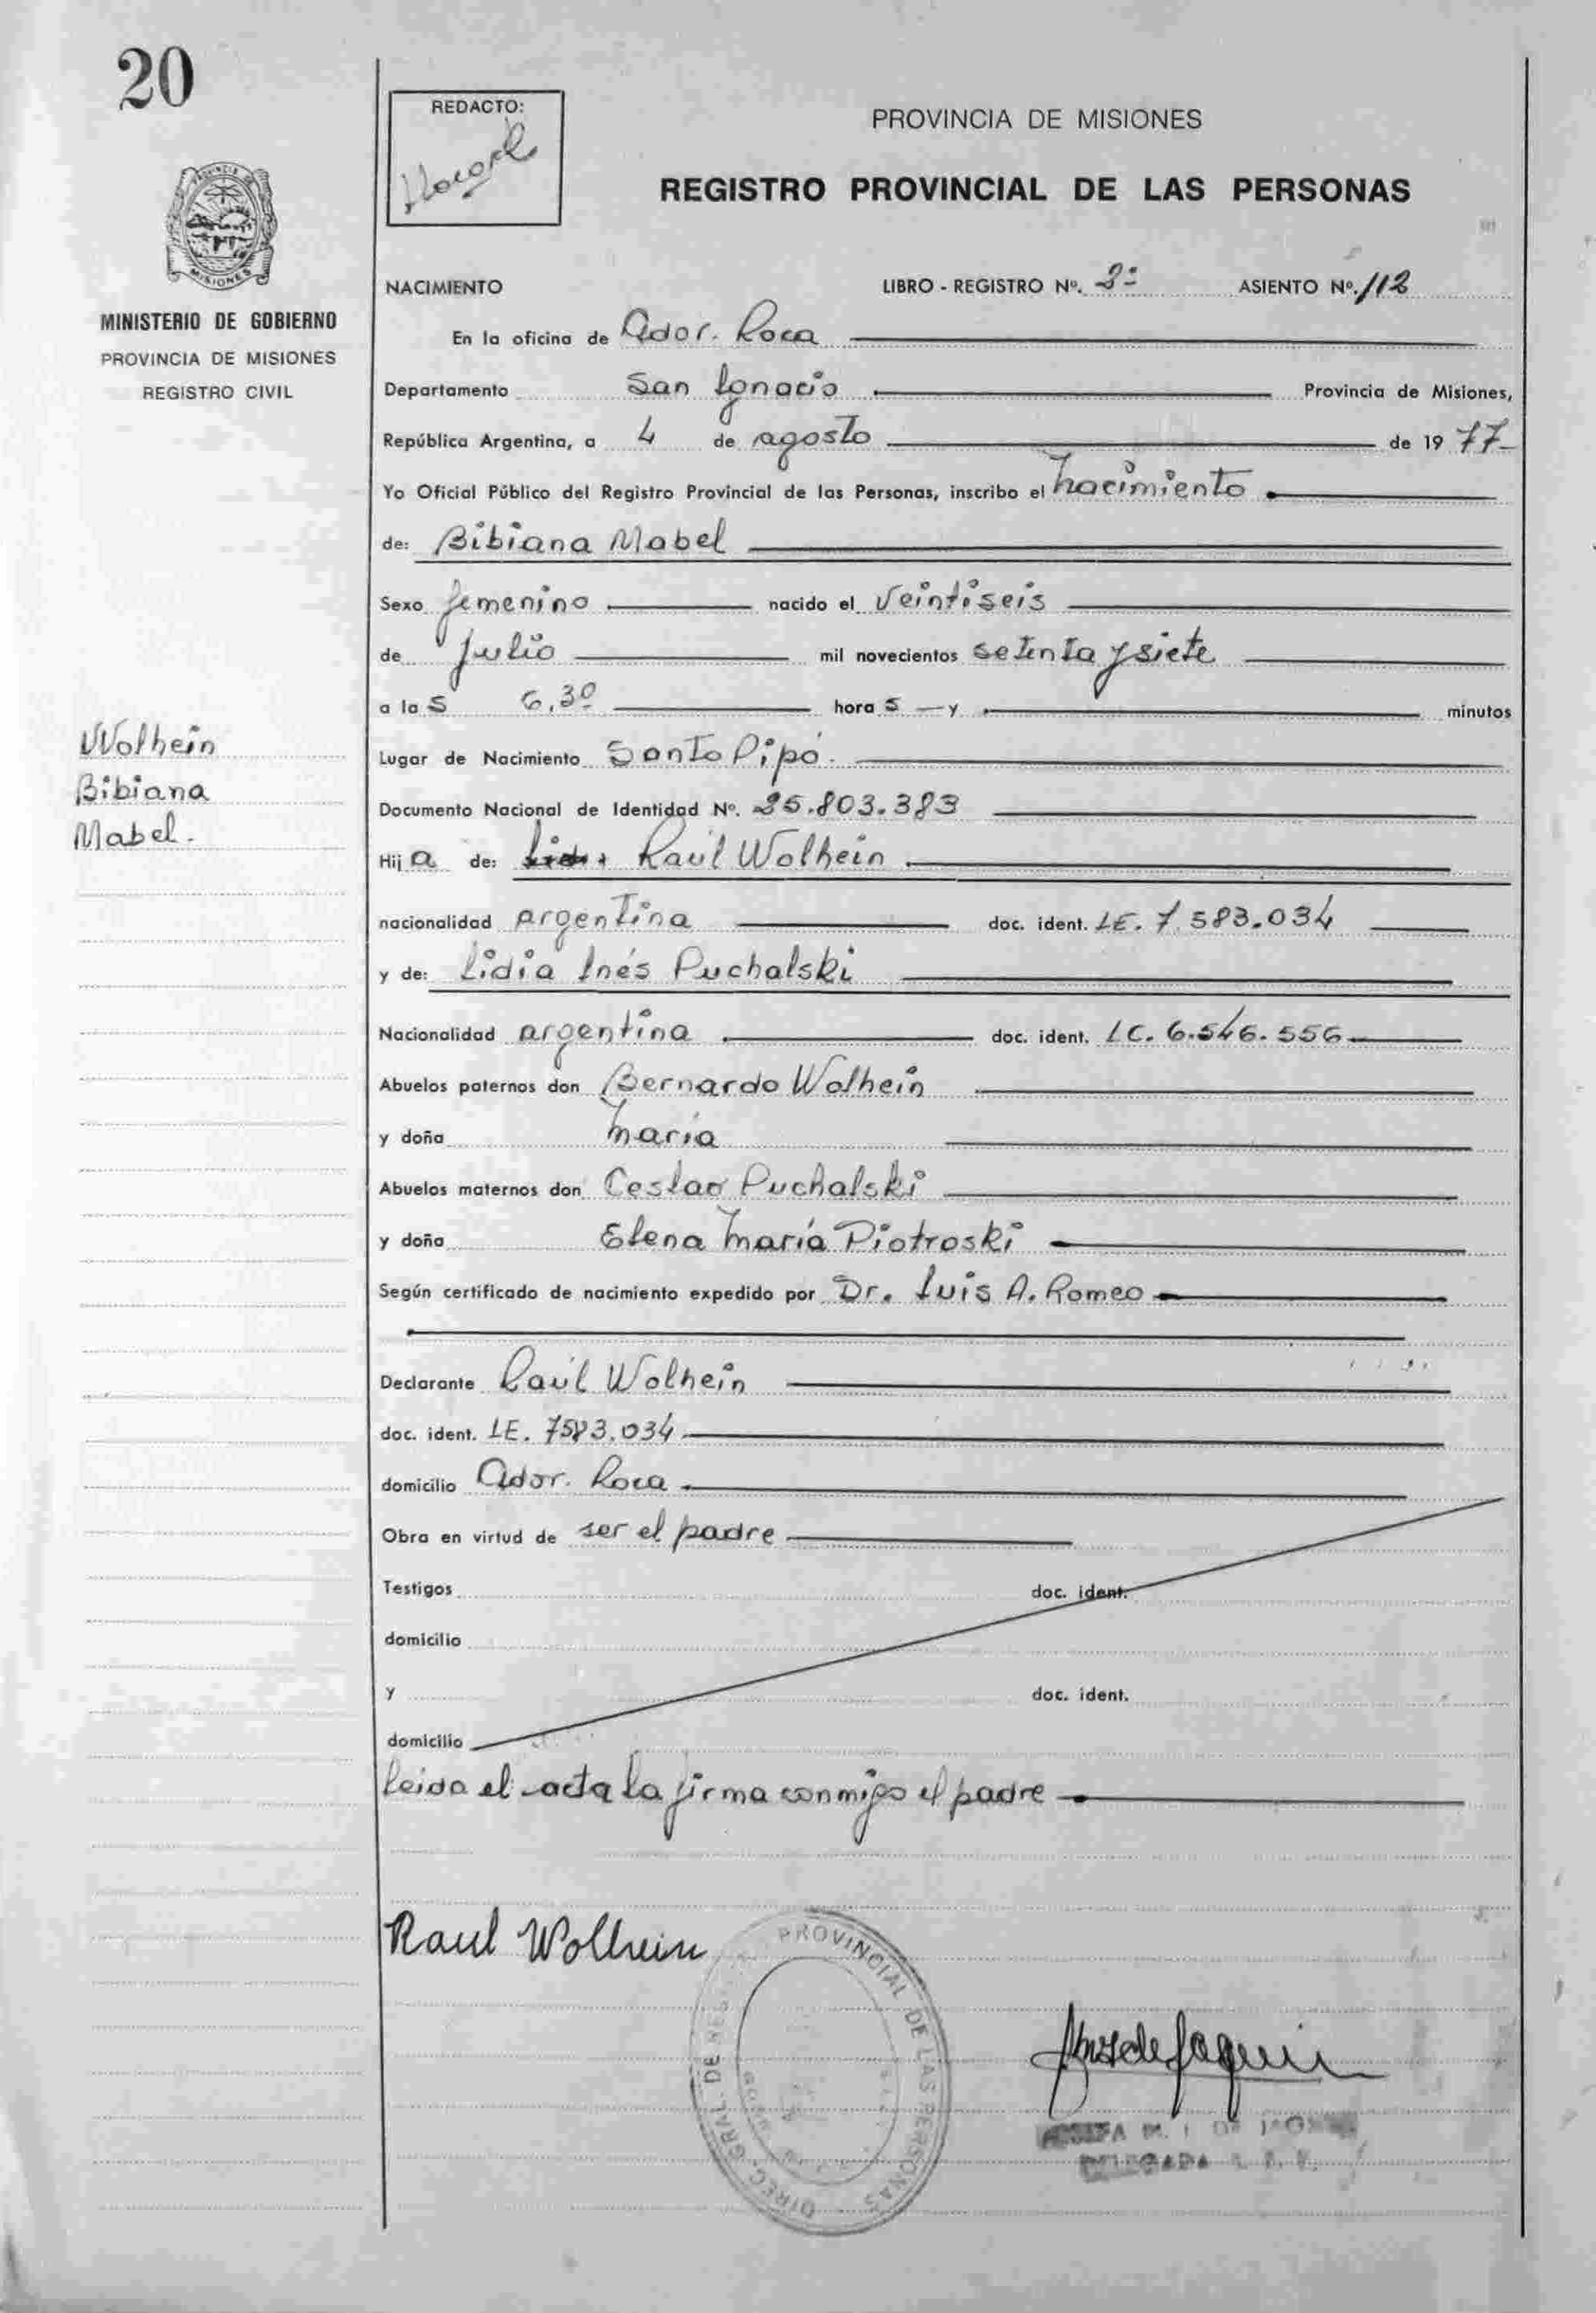 20
REDACTO:
PROVINCIA DE MISIONES
REGISTRO PROVINCIAL DE LAS PERSONAS
MISIONES
MINISTERIO DE GOBIERNO
PROVINCIA DE MISIONES
REGISTRO CIVIL
NACIMIENTO LIBRO - REGISTRO Nº. 2º ASIENTO Nº. 112
En la oficina de Gdor. Roca
Departamento San Ignacio Provincia de Misiones,
República Argentina, a 4 de agosto de 1977
Yo Oficial Público del Registro Provincial de las Personas, inscribo el nacimiento
de: Bibiana Mabel
Sexo femenino nacido el veintiseis
de Julio mil novecientos setenta y siete
a las 6,30 horas y minutos
Wolhein
Bibiana
Mabel.
Lugar de Nacimiento Santo Pipó.
Documento Nacional de Identidad Nº. 25.803.383
Hija de: Raúl Wolhein
nacionalidad argentina doc. ident. LE. 7.583.034
y de: Lidia Inés Puchalski
Nacionalidad argentina doc. ident. LC. 6.546.556
Abuelos paternos don Bernardo Wolhein
y doña María
Abuelos maternos don Ceslao Puchalski
y doña Elena María Piotroski
Según certificado de nacimiento expedido por Dr. Luis A. Romeo
Declarante Raúl Wolhein
doc. ident. LE. 7583.034
domicilio Gdor. Roca
Obra en virtud de ser el padre
Testigos doc. ident.
domicilio
y doc. ident.
domicilio
leida el acta la firma conmigo el padre
Raul Wolhein
DIREC. GRAL. DE PROVINCIAL DE LAS PERSONAS
DELEGADA